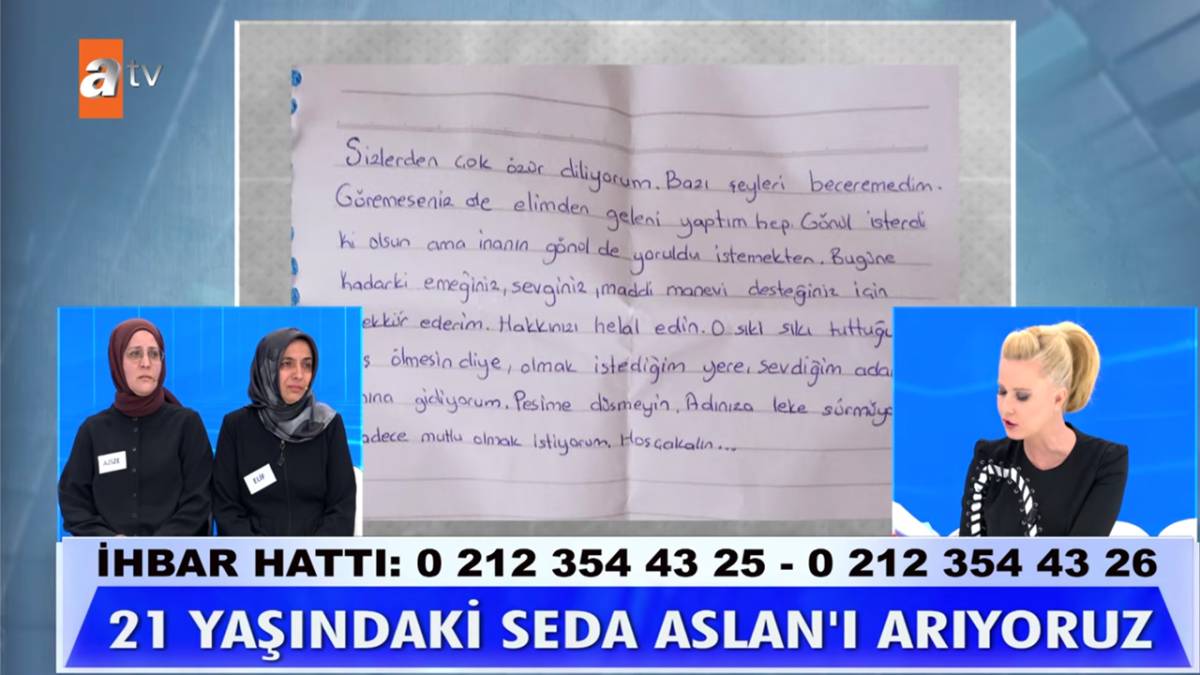 atv
Sizlerden çok özür diliyorum. Bazı şeyleri beceremedim.
Göremeseniz de elimden geleni yaptım hep. Gönül isterdi
ki olsun ama inanın gönül de yoruldu istemekten. Bugüne
kadarki emeğiniz, sevginiz, maddi manevi desteğiniz için
ekkür ederim. Hakkınızı helal edin. O sıkı sıkı tuttuğu
ş ölmesin diye, olmak istediğim yere, sevdiğim ada
ına gidiyorum. Peşime düşmeyin. Adınıza leke sürmüy
adece mutlu olmak istiyorum. Hoşçakalın...
AZİZE
ELİF
İHBAR HATTI: 0 212 354 43 25 - 0 212 354 43 26
21 YAŞINDAKİ SEDA ASLAN'I ARIYORUZ